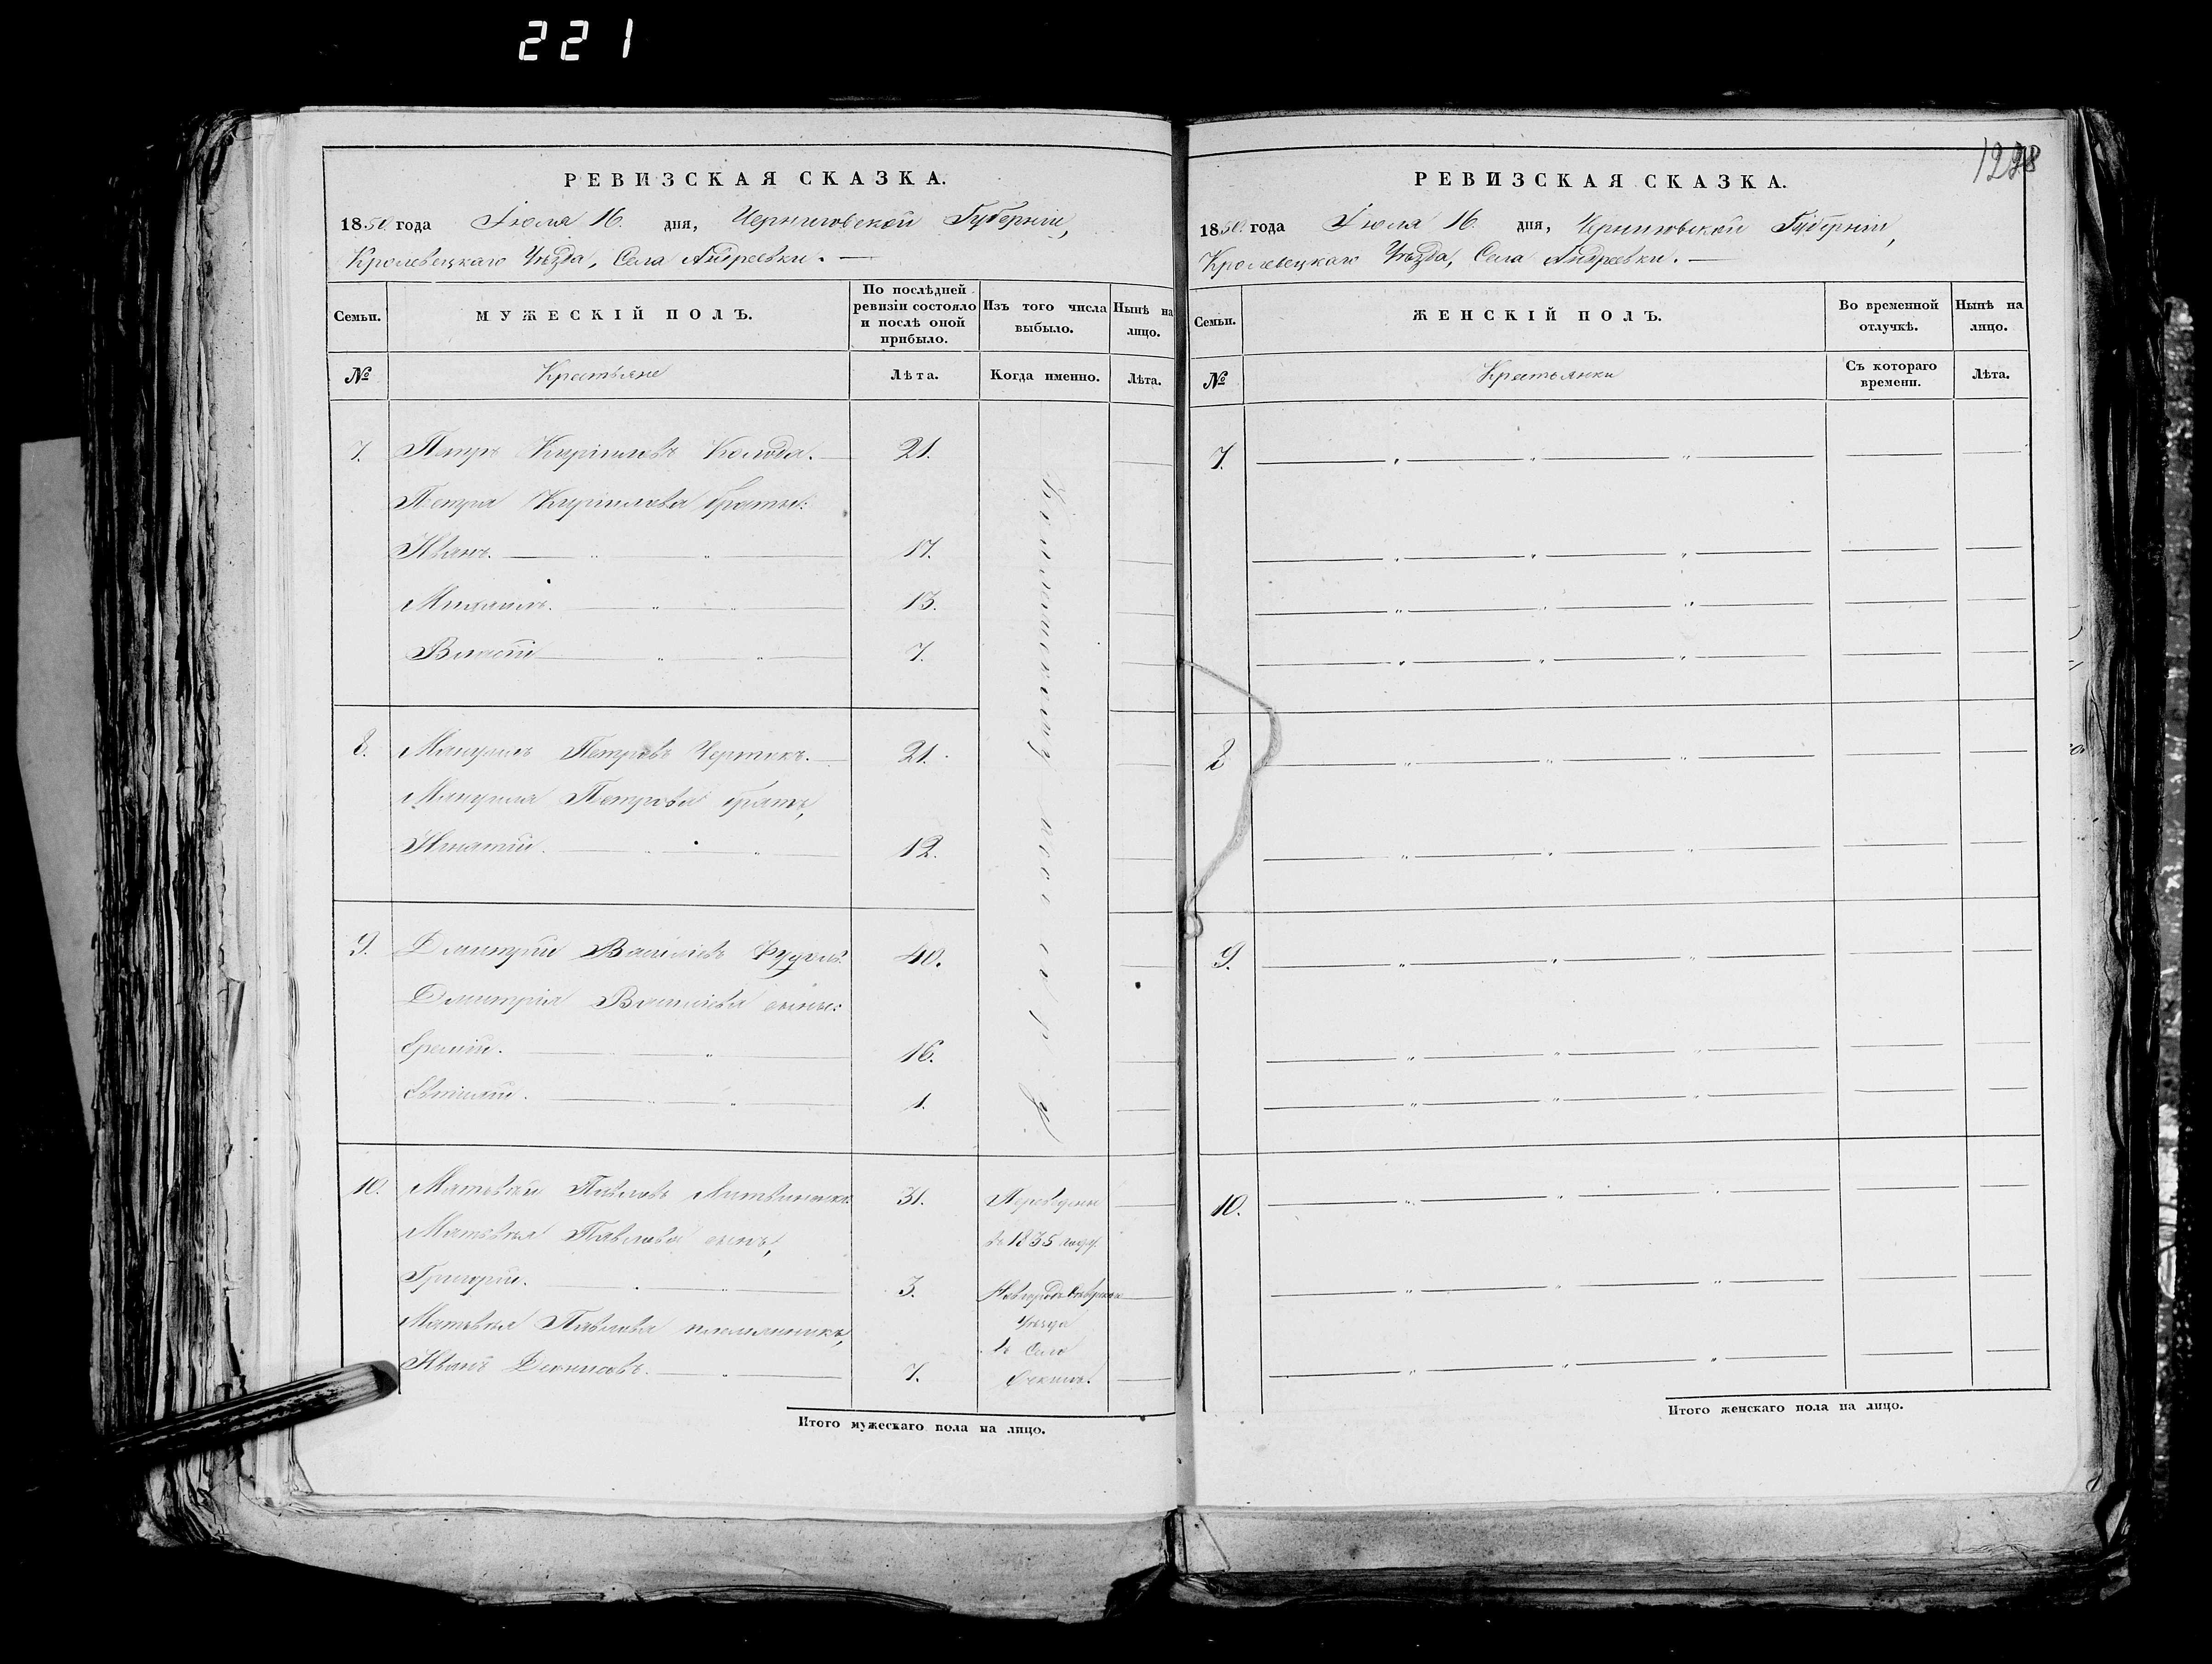 221
РЕВИЗСКАЯ СКАЗКА.
1850 года Іюля 16. дня, Черниговской Губерніи,
Кролевецкаго Уѣзда, Села Андреевки. —
Семьи.
МУЖЕСКІЙ ПОЛЪ.
По послѣдней ревизіи состояло и послѣ оной прибыло.
Изъ того числа выбыло.
Нынѣ на лицо.
№
Крестьяне
Лѣта.
Когда именно.
Лѣта.
7. Петръ Кириловъ Колода. 21.
Петра Кирилова братья:
Иванъ. — " — " — 17.
Михаилъ. — " — " — 13.
Власій — " — " — 7.
8. Мануилъ Петровъ 21.
Мануила Петрова братъ,
Игнатій. — " — " — 12.
9. Дмитрій Василіевъ 40.
Дмитрія Василіева сыны:
Еремій. — " — 16.
— " — " — 1.
10. Матвѣй Павловъ Литвиненко 31. Переведены
Матвѣя Павлова сынъ, въ 1835 году
Григорій. — " — " — 3. Новгородъ Сѣверскаго
Матвѣя Павлова племянникъ, Уѣзда
въ Село
Иванъ Денисовъ. — " — 7.
Итого мужескаго пола на лицо.
1228
РЕВИЗСКАЯ СКАЗКА.
1850 года Іюля 16. дня, Черниговской Губерніи,
Кролевецкаго Уѣзда, Села Андреевки. —
Семьи.
ЖЕНСКІЙ ПОЛЪ.
Во временной отлучкѣ.
Нынѣ на лицо.
№
Крестьянки
Съ котораго времени.
Лѣта.
7.
8
9.
10.
Итого женскаго пола на лицо.